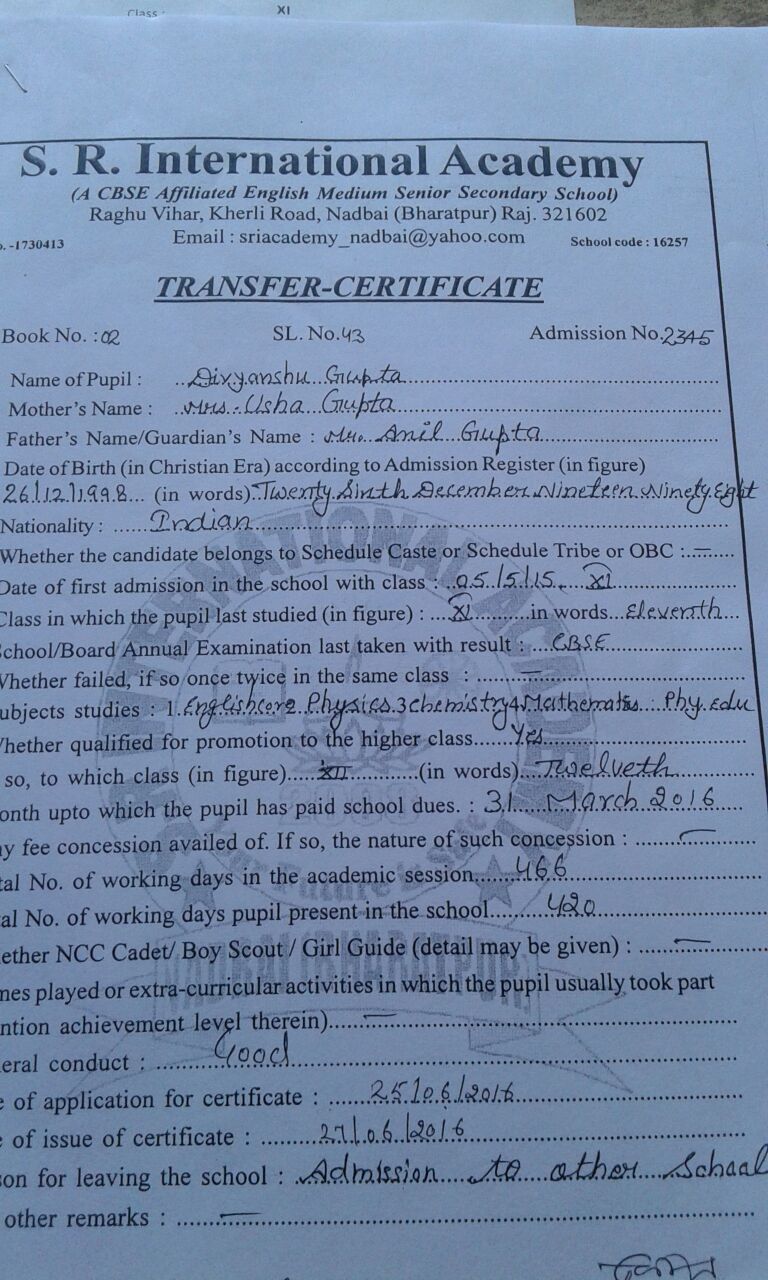 Class : XI
S. R. International Academy
(A CBSE Affiliated English Medium Senior Secondary School)
Raghu Vihar, Kherli Road, Nadbai (Bharatpur) Raj. 321602
o. -1730413 Email : sriacademy_nadbai@yahoo.com School code : 16257
TRANSFER-CERTIFICATE
Book No. : 02 SL. No. 43 Admission No. 2345
Name of Pupil : Divyanshu Gupta
Mother's Name : Mrs. Usha Gupta
Father's Name/Guardian's Name : Mr. Anil Gupta
Date of Birth (in Christian Era) according to Admission Register (in figure)
26/12/1998 (in words) Twenty Sixth December Nineteen Ninety Eight
Nationality : Indian
Whether the candidate belongs to Schedule Caste or Schedule Tribe or OBC : —
Date of first admission in the school with class : 05/5/15 XI
Class in which the pupil last studied (in figure) : XI in words Eleventh
chool/Board Annual Examination last taken with result : CBSE
Whether failed, if so once twice in the same class : —
ubjects studies : 1. English core 2 Physics 3 chemistry 4 Mathematis Phy. edu
hether qualified for promotion to the higher class Yes
so, to which class (in figure) XII (in words) Twelveth
onth upto which the pupil has paid school dues. : 31 March 2016
y fee concession availed of. If so, the nature of such concession : —
tal No. of working days in the academic session 466
al No. of working days pupil present in the school 420
ether NCC Cadet/ Boy Scout / Girl Guide (detail may be given) : —
mes played or extra-curricular activities in which the pupil usually took part
ntion achievement level therein) —
eral conduct : Good
e of application for certificate : 25/06/2016
e of issue of certificate : 27/06/2016
son for leaving the school : Admission to other School
other remarks : —